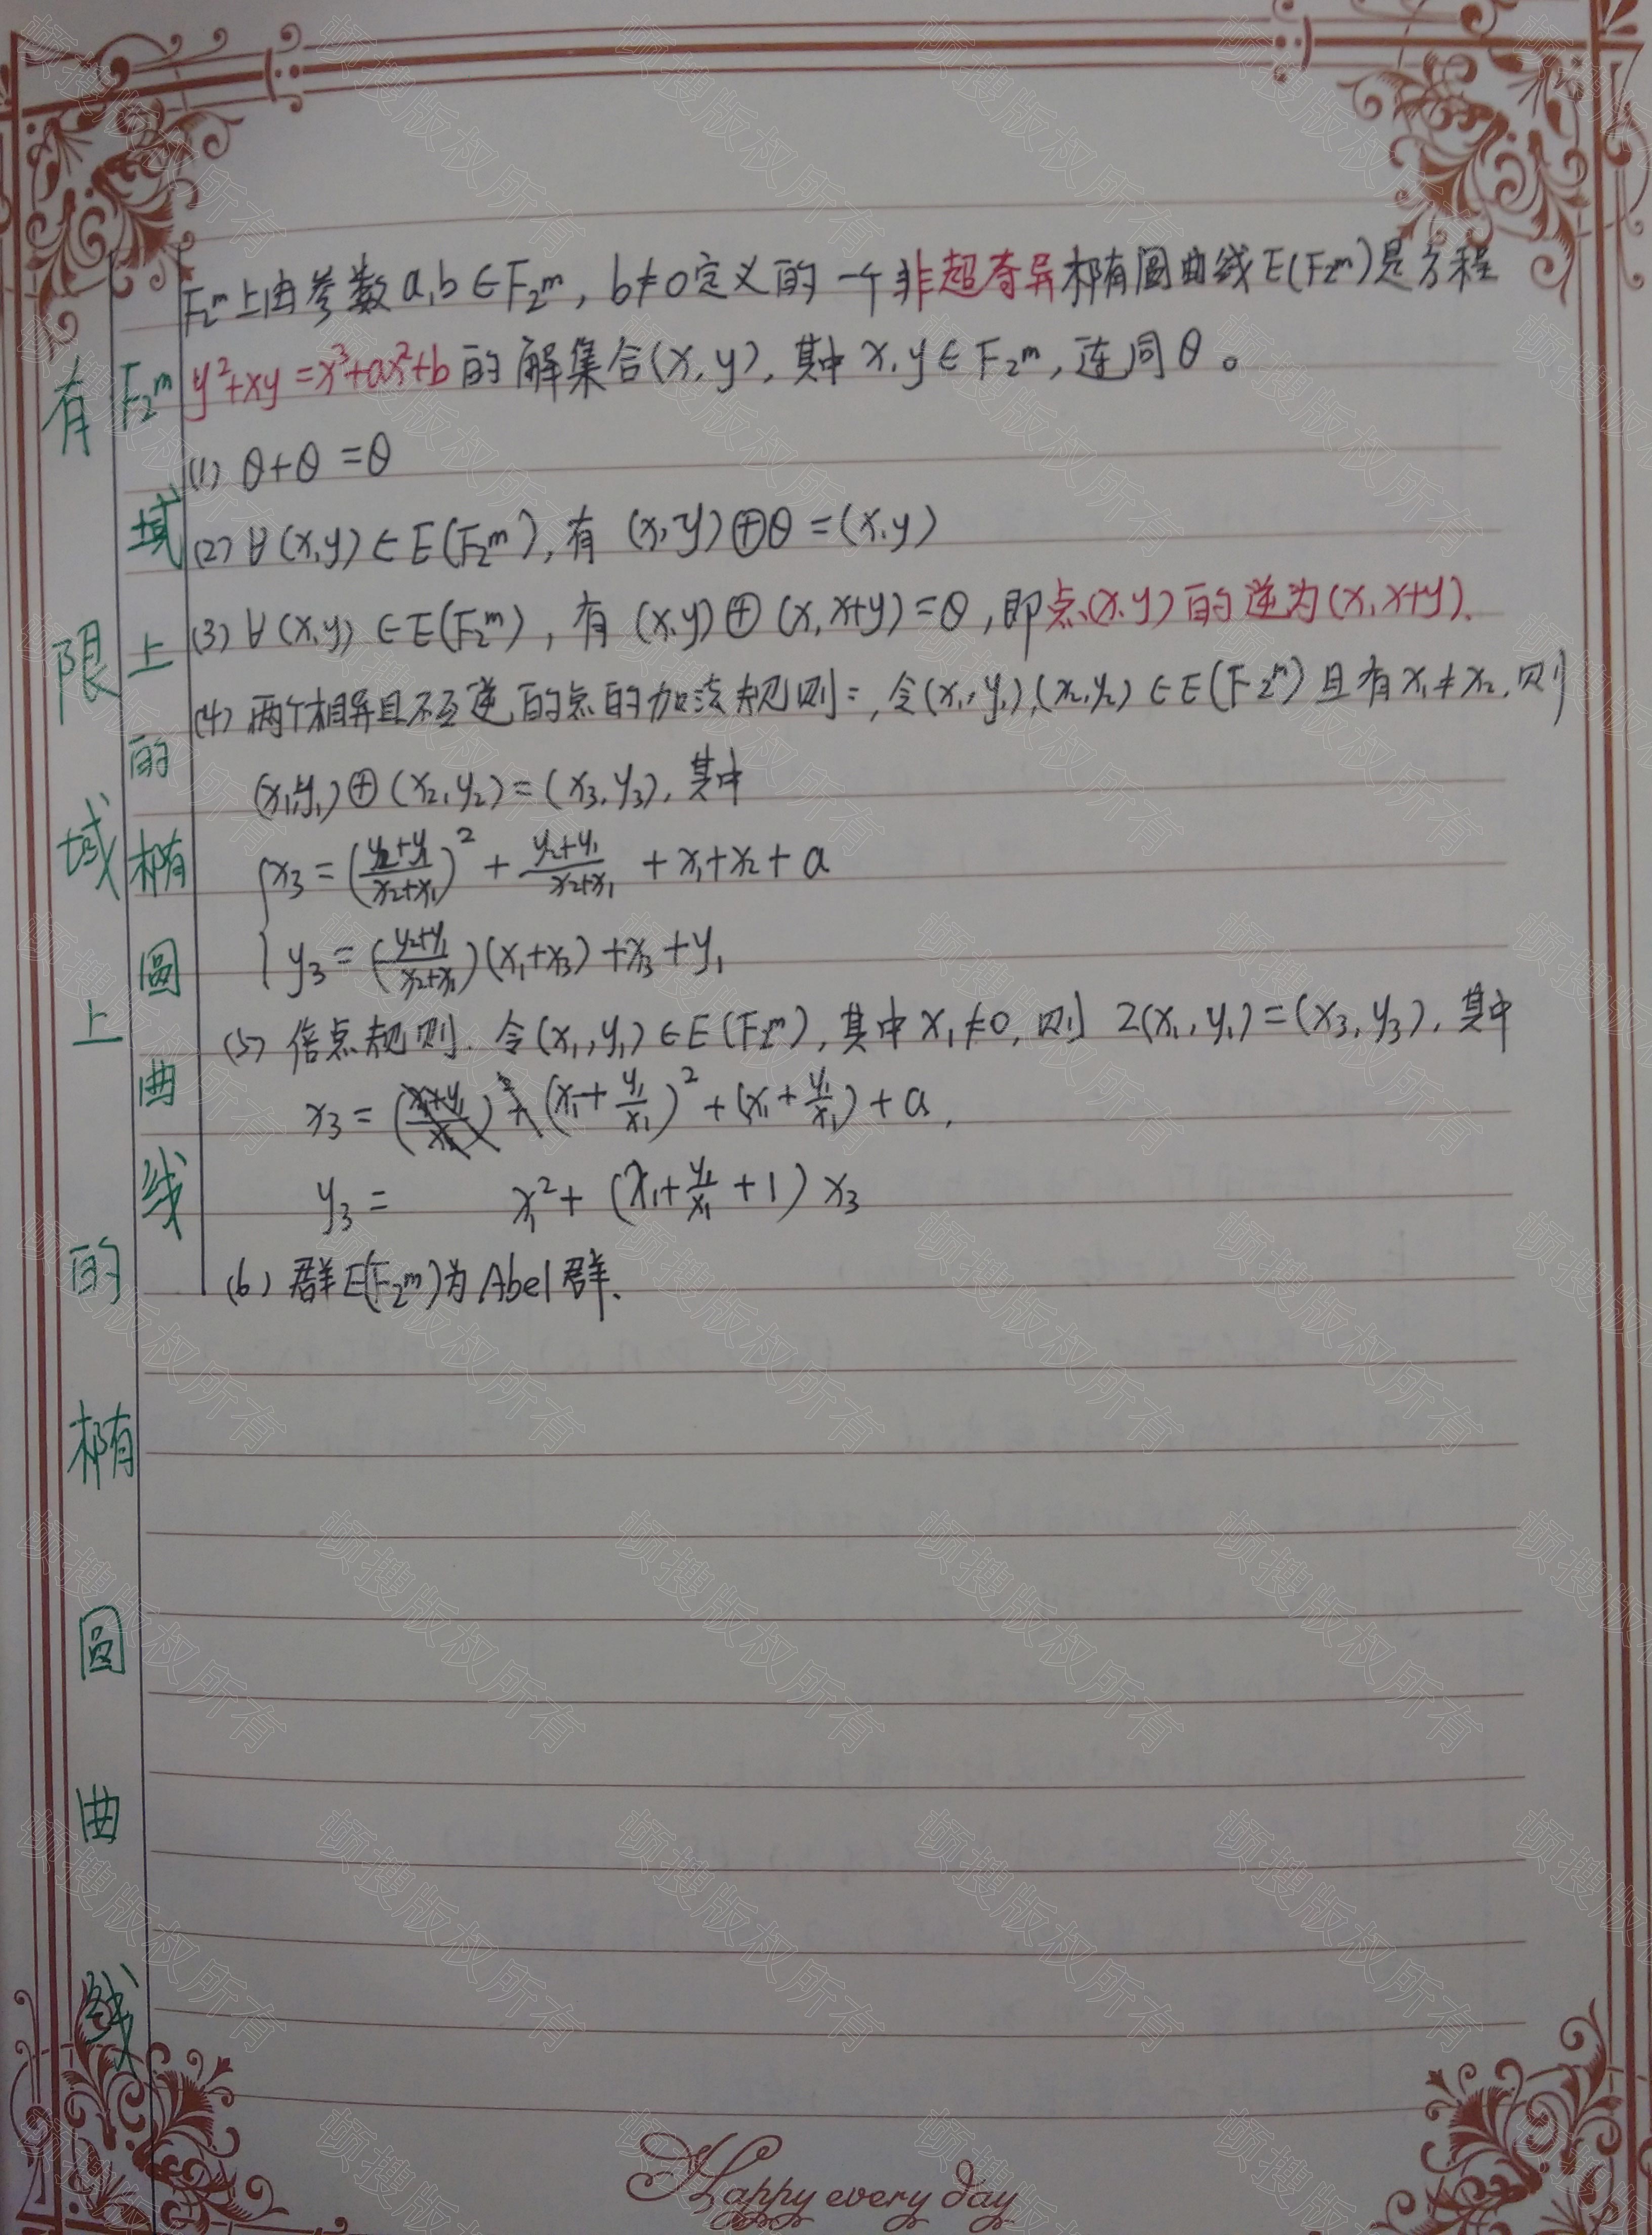 有限域上的椭圆曲线
F₂ᵐ域上的椭圆曲线
F₂ᵐ上由参数a,b∈F₂ᵐ, b≠0定义的一个非超奇异椭圆曲线E(F₂ᵐ)是方程
y²+xy=x³+ax²+b的解集合(x,y),其中x,y∈F₂ᵐ,连同θ。
(1) θ+θ=θ
(2) ∀(x,y)∈E(F₂ᵐ),有 (x,y)⊕θ=(x,y)
(3) ∀(x,y)∈E(F₂ᵐ),有 (x,y)⊕(x,x+y)=θ,即点(x,y)的逆为(x,x+y).
(4) 两个相异且不互逆的点的加法规则:令(x₁,y₁),(x₂,y₂)∈E(F₂ᵐ)且有x₁≠x₂,则
(x₁,y₁)⊕(x₂,y₂)=(x₃,y₃),其中
x₃=((y₂+y₁)/(x₂+x₁))²+(y₂+y₁)/(x₂+x₁)+x₁+x₂+a
y₃=((y₂+y₁)/(x₂+x₁))(x₁+x₃)+x₃+y₁
(5) 倍点规则.令(x₁,y₁)∈E(F₂ᵐ),其中x₁≠0,则 2(x₁,y₁)=(x₃,y₃),其中
x₃=(x₁+y₁/x₁)²+(x₁+y₁/x₁)+a,
y₃= x₁²+(x₁+y₁/x₁+1)x₃
(6) 群E(F₂ᵐ)为Abel群.
Happy every day
顿搜版权所有